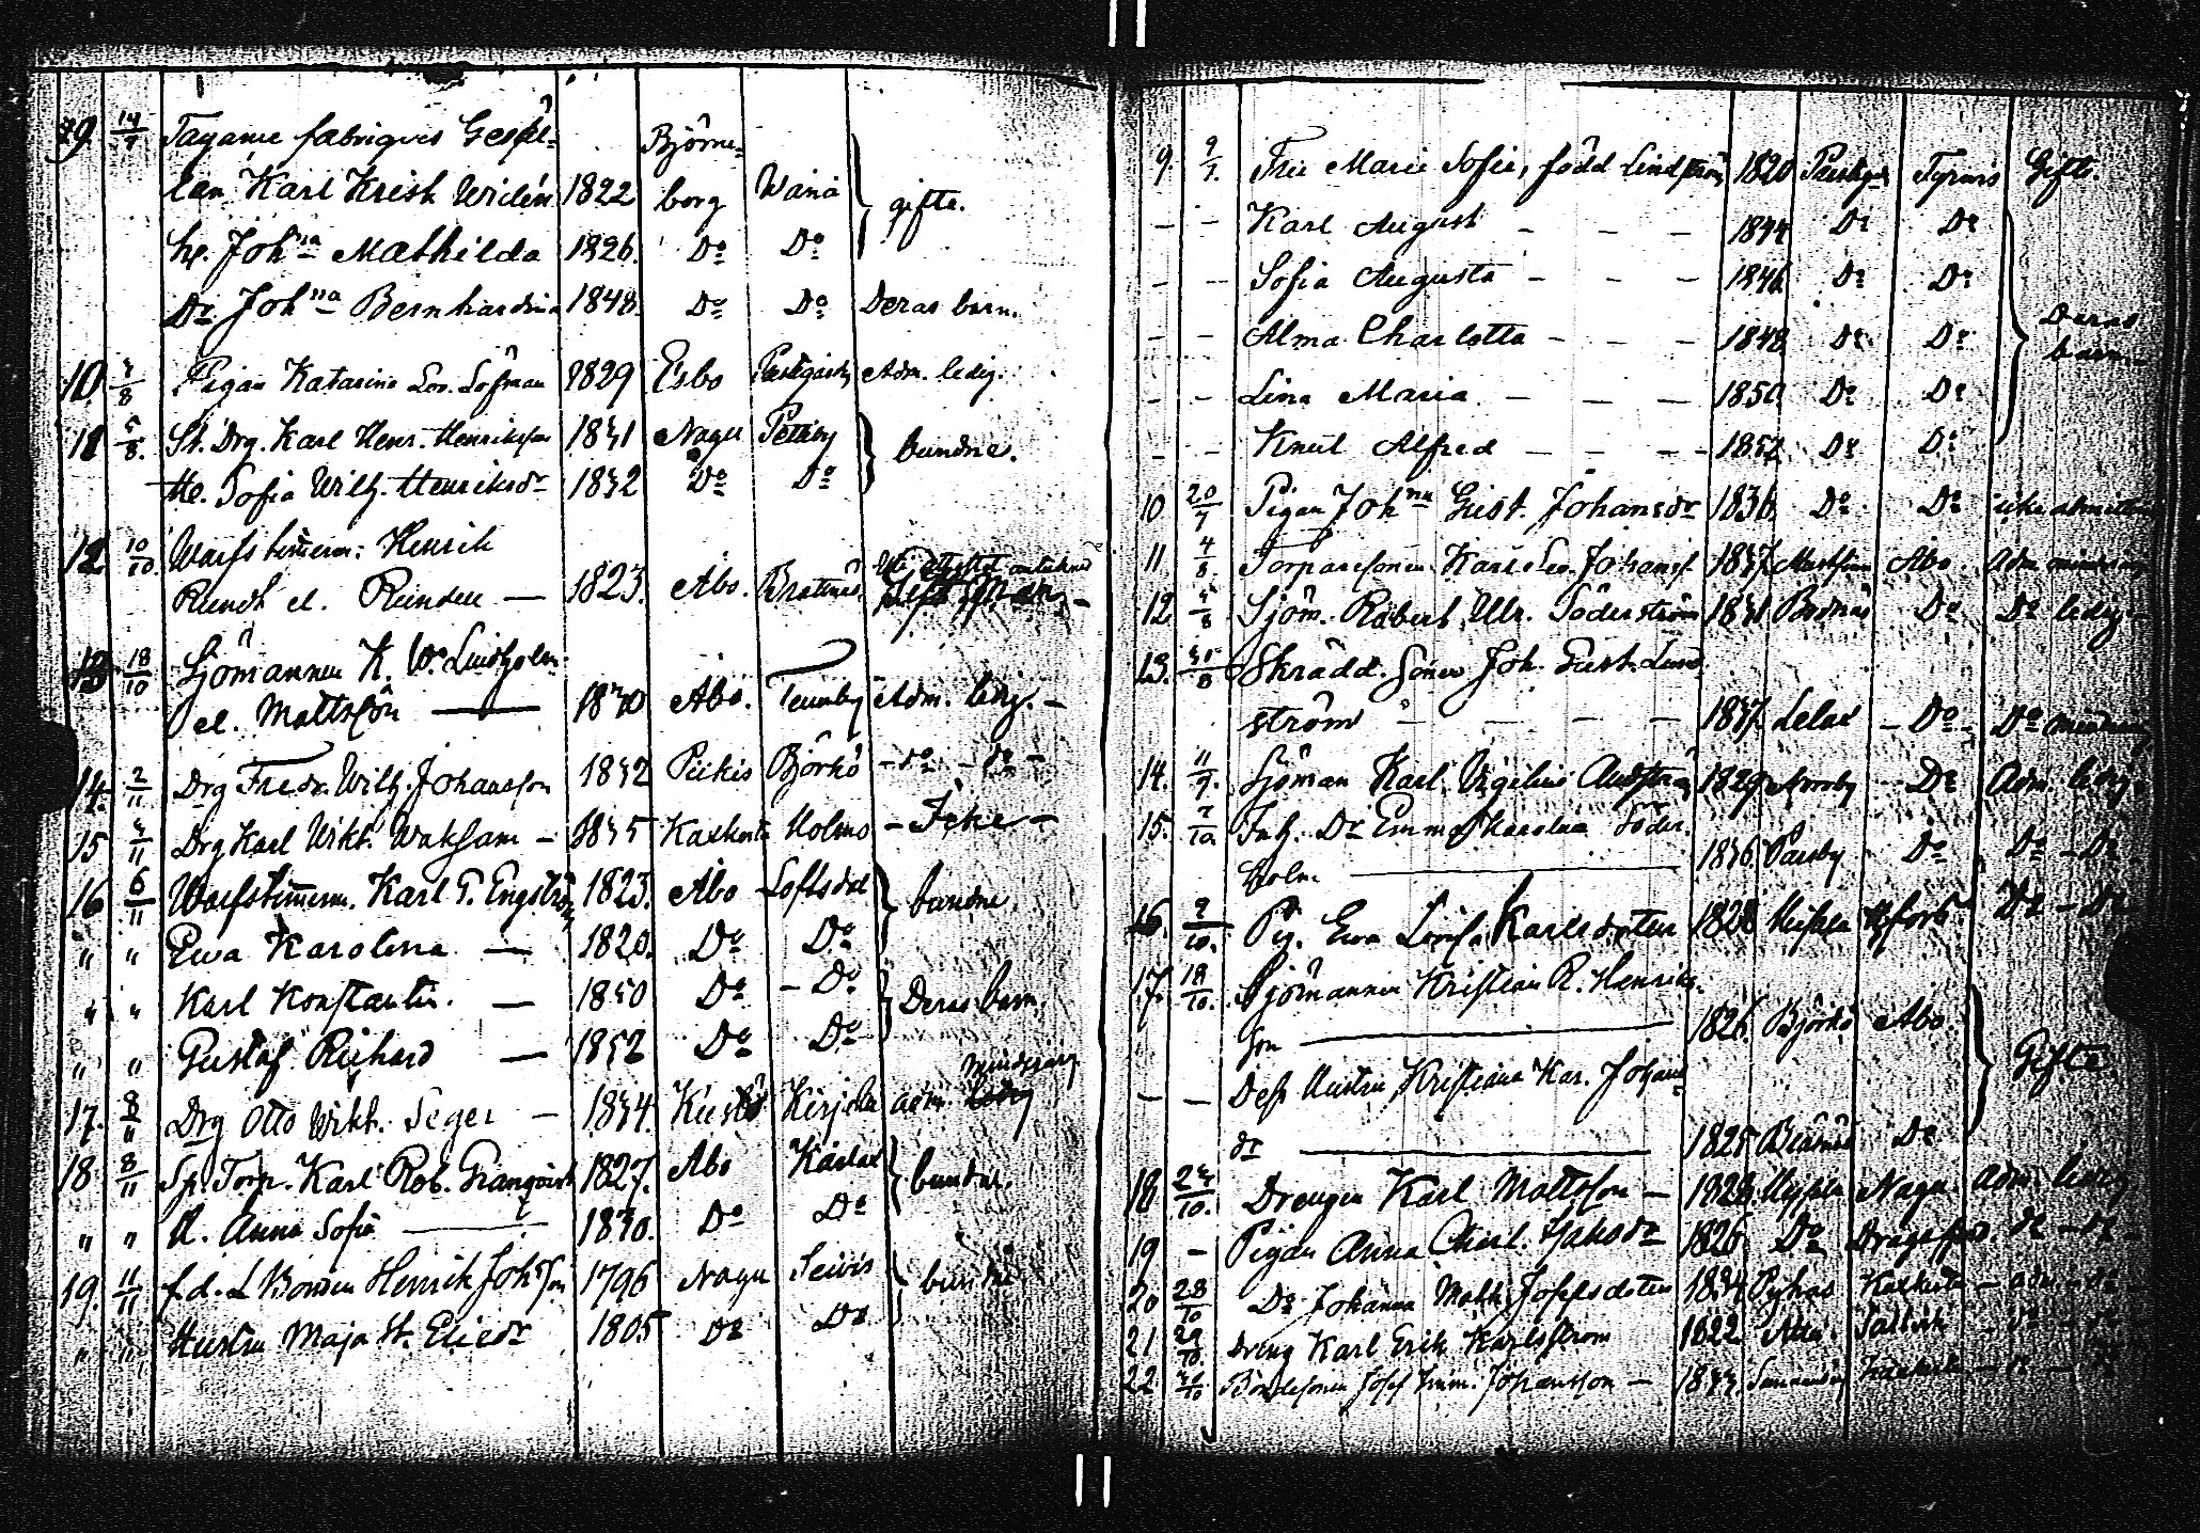 9. 14/7 Tayanie fabriques Gesäl-
Björne-
len Karl Krist Widén 1822 borg Wanå gifte.
H. Joh:na Mathilda 1826. Do Do
Dr Joh:na Bernhardina 1848. Do Do Deras barn.
10. 4/8 Pigan Katarina Lov. Löfman 1829 Esbo Prestgården Adm. ledig.
11 5/8. St. Drg. Karl Henr. Henriksson 1831 Nagu Pettby bundne.
H. Sofia Wilh. Henriksdr 1832 Do Do
12 10/10. Warfstimerm: Henrik
Rundt el. Rundell — 1823. Åbo.
13 18/10 Sjömannen K. W. Lindholm
el. Mattsson — 1830 Åbo. Adm. ledig. —
14. 2/11 Drg Fredr. Wilh. Johansson 1832 Pickis Björkö - do - do -
15 4/11 Drg Karl Wikt. Waksam - 1835 Kaxkerta Holmo - Icke -
16 6/11 Warfstimerm. Karl G. Engström 1823. Åbo Loftsdal bundne.
" " Ewa Karolina — 1820. Do Do
" " Karl Konstantin. — 1850 Do - Do Deras barn.
" " Gustaf Richard — 1852 Do Do
minderårig
17. 8/" Drg Otto Wikt. Seger — 1834. Kustö Kirjala adm.
18 8/11 Sp. Torp. Karl Rob. Granqvist 1827. Åbo bundne.
" " H. Anna Sofia — 1830. Do Do
19. 11/11 f.d. L Bonden Henrik Joh:sson 1796 Nagu bundne
" " Hustru Maja St. Eliedr 1805 Do Do
9. 9/7. Fru Maria Sofia, född Lindström 1820 Prestgn Gifte.
- - Karl August - - - 1844 Do Do
- - Sofia Augusta - - - 1846 Do Do
- - Alma Charlotta - - - 1848 Do Do Deras
barn
- - Lina Maria. - - - 1850 Do Do
- - Knut Alfred - - - 1852 Do Do
10 20/7 Pigan Joh:na Gust. Johansdr 1836 Do Do icke admitterad
11 4/8 Torparesonen Karl Leo. Johanss. 1837 Åbo. Adm. minderårig
12 5/8 Sjöm. Robert Ulr. Söderström 1831 Do Do ledig -
13. Skrädd. Sonen Joh. Gust. Lind-
ström - - - 1837. Lelax - Do - Do minderårig
14. 11/9. Sjöman Karl Virgilius 1829 Do Adm. ledig.
15. 7/10. Inh. Dr Emma Karolina Söder-
holm — 1836. Parsby Do Do - Do
16. 9/10. Pig. Ewa Lovisa Karlsdotter 1828 H:fors Do - Do
17. 19/10. Sjömannen Kristian R. Henriks-
son — 1826. Björkö Åbo. Gifte
- - Dess Hustru Kristiana Kar. Johans-
dr — 1825 Do
18. 24/10. Drengen Karl Mattsson - 1828. Nagu Adm. ledig
19 - Pigan Anna Isaksdr 1826 Do Dragsfjerd. Do - Do
20 28/10 Do Johanna Math. Josefsdotter 1834 Kaxkerta - adm - Do
21 29/10. Dreng Karl Erik Karlström 1822 - Do - Do
22 Bondesonen Josef Imm. Johansson - 1833.